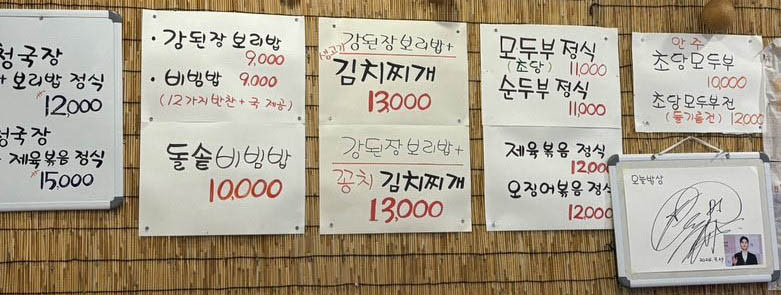 청국장
+ 보리밥 정식
12,000
청국장
+ 제육볶음 정식
15,000
· 강된장 보리밥
9,000
· 비빔밥 9.000
(12가지반찬+국 제공)
돌솥비빔밥
10,000
생고기 강된장보리밥+
김치찌개
13,000
강된장보리밥+
꽁치 김치찌개
13,000
모두부 정식
(초당) 11,000
순두부 정식
11,000
제육볶음 정식
12,000
오징어볶음 정식
12,000
안주
초당모두부
10,000
초당모두부전
(들기름전) 12,000
오늘밥상